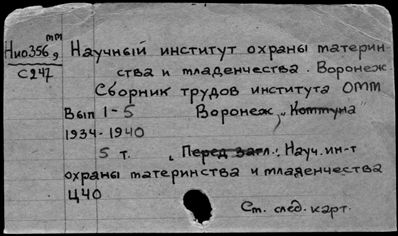 тт
Нио356,9 Научный институт охраны материн-
С247 ства и младенчества. Воронеж
Сборник трудов института ОММ
Вып 1-5 Воронеж, "Коммуна"
1934-1940
5 т. "Перед загл.: Науч. ин-т
охраны материнства и младенчества
ЦЧО
См. след. карт.